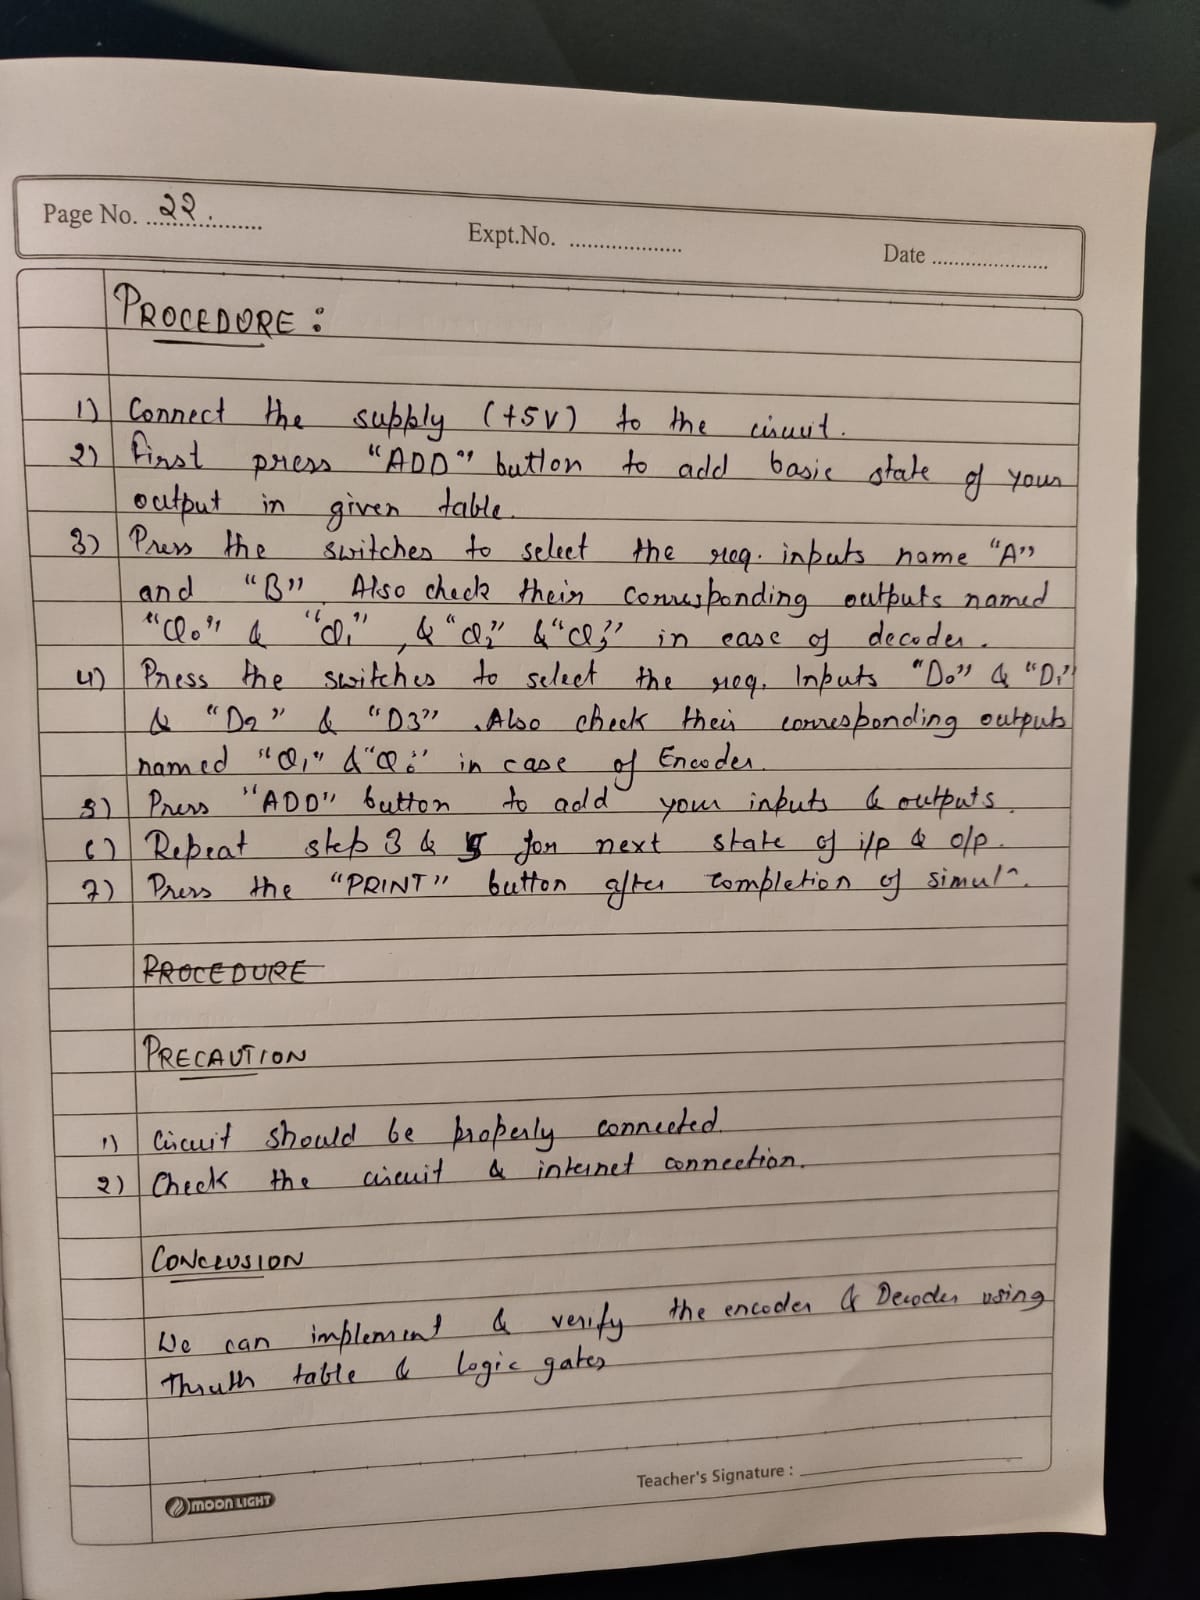 Page No. 22.
Expt.No. ....................
Date .....................
PROCEDURE :
1) Connect the supply (+5V) to the circuit.
2) First press "ADD" button to add basic state of your
output in given table.
3) Press the switches to select the req. inputs name "A"
and "B". Also check their corresponding outputs named
"Q0" & "Q1", & "Q2" & "Q3" in case of decoder.
4) Press the switches to select the req. Inputs "D0" & "D1"
& "D2" & "D3". Also check their corresponding outputs
named "Q1" & "Q0" in case of Encoder.
5) Press "ADD" button to add your inputs & outputs.
6) Repeat step 3 & 5 for next state of i/p & o/p.
7) Press the "PRINT" button after completion of simul^n.
PROCEDURE
PRECAUTION
1) Circuit should be properly connected.
2) Check the circuit & internet connection.
CONCLUSION
We can implement & verify the encoder & Decoder using
Thruth table & logic gates
Teacher's Signature :
MOONLIGHT